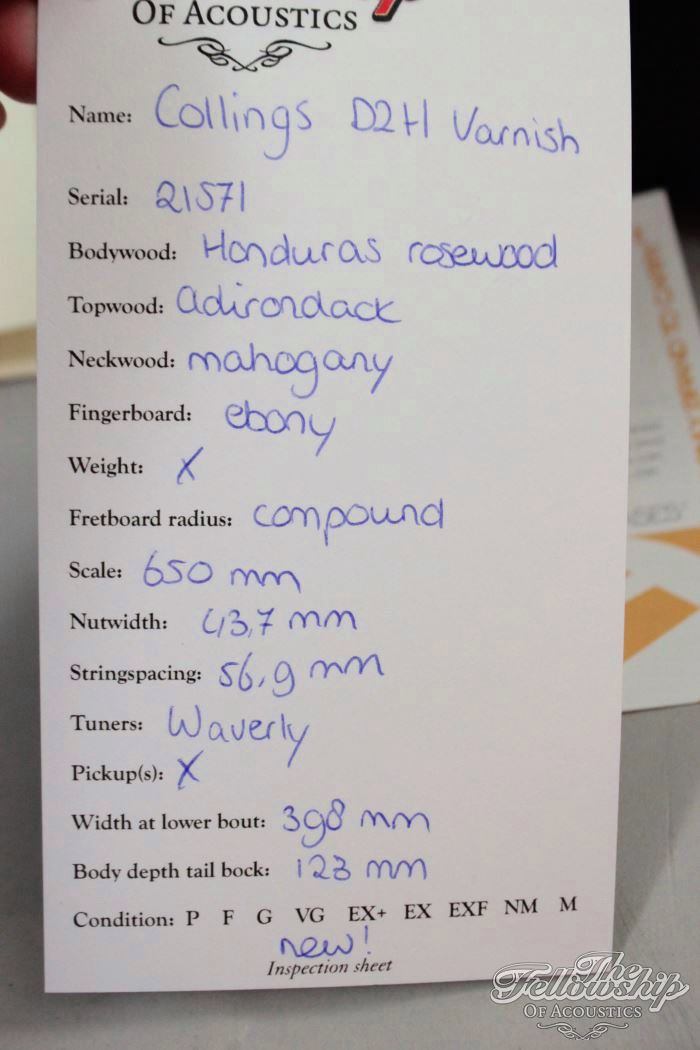 OF ACOUSTICS
Name: Collings D2H Varnish
Serial: 21571
Bodywood: Honduras rosewood
Topwood: Adirondack
Neckwood: mahogany
Fingerboard: ebony
Weight: X
Fretboard radius: compound
Scale: 650 mm
Nutwidth: 43,7 mm
Stringspacing: 56,9 mm
Tuners: Waverly
Pickup(s): X
Width at lower bout: 398 mm
Body depth tail bock: 123 mm
Condition: P F G VG EX+ EX EXF NM M
new!
Inspection sheet
The
Fellowship
OF ACOUSTICS